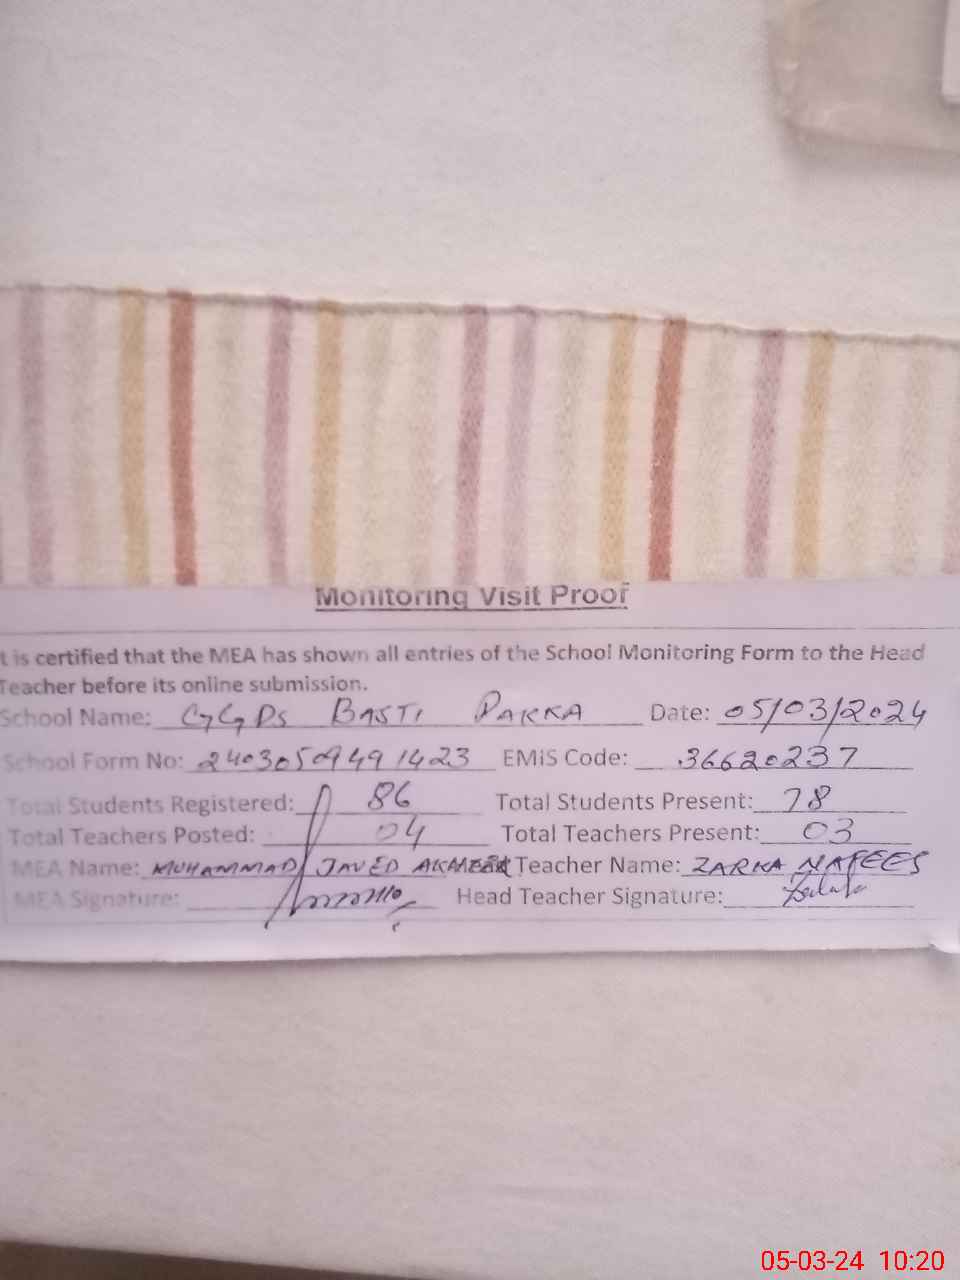 Monitoring Visit Proof
t is certified that the MEA has shown all entries of the School Monitoring Form to the Head
Teacher before its online submission.
School Name: GGPS BASTI PAKKA Date: 05/03/2024
School Form No: 24030509491423 EMIS Code: 36620237
Total Students Registered: 86 Total Students Present: 78
Total Teachers Posted: 04 Total Teachers Present: 03
MEA Name: MUHAMMAD JAVED Teacher Name: ZARKA NAFEES
MEA Signature: Head Teacher Signature:
05-03-24 10:20